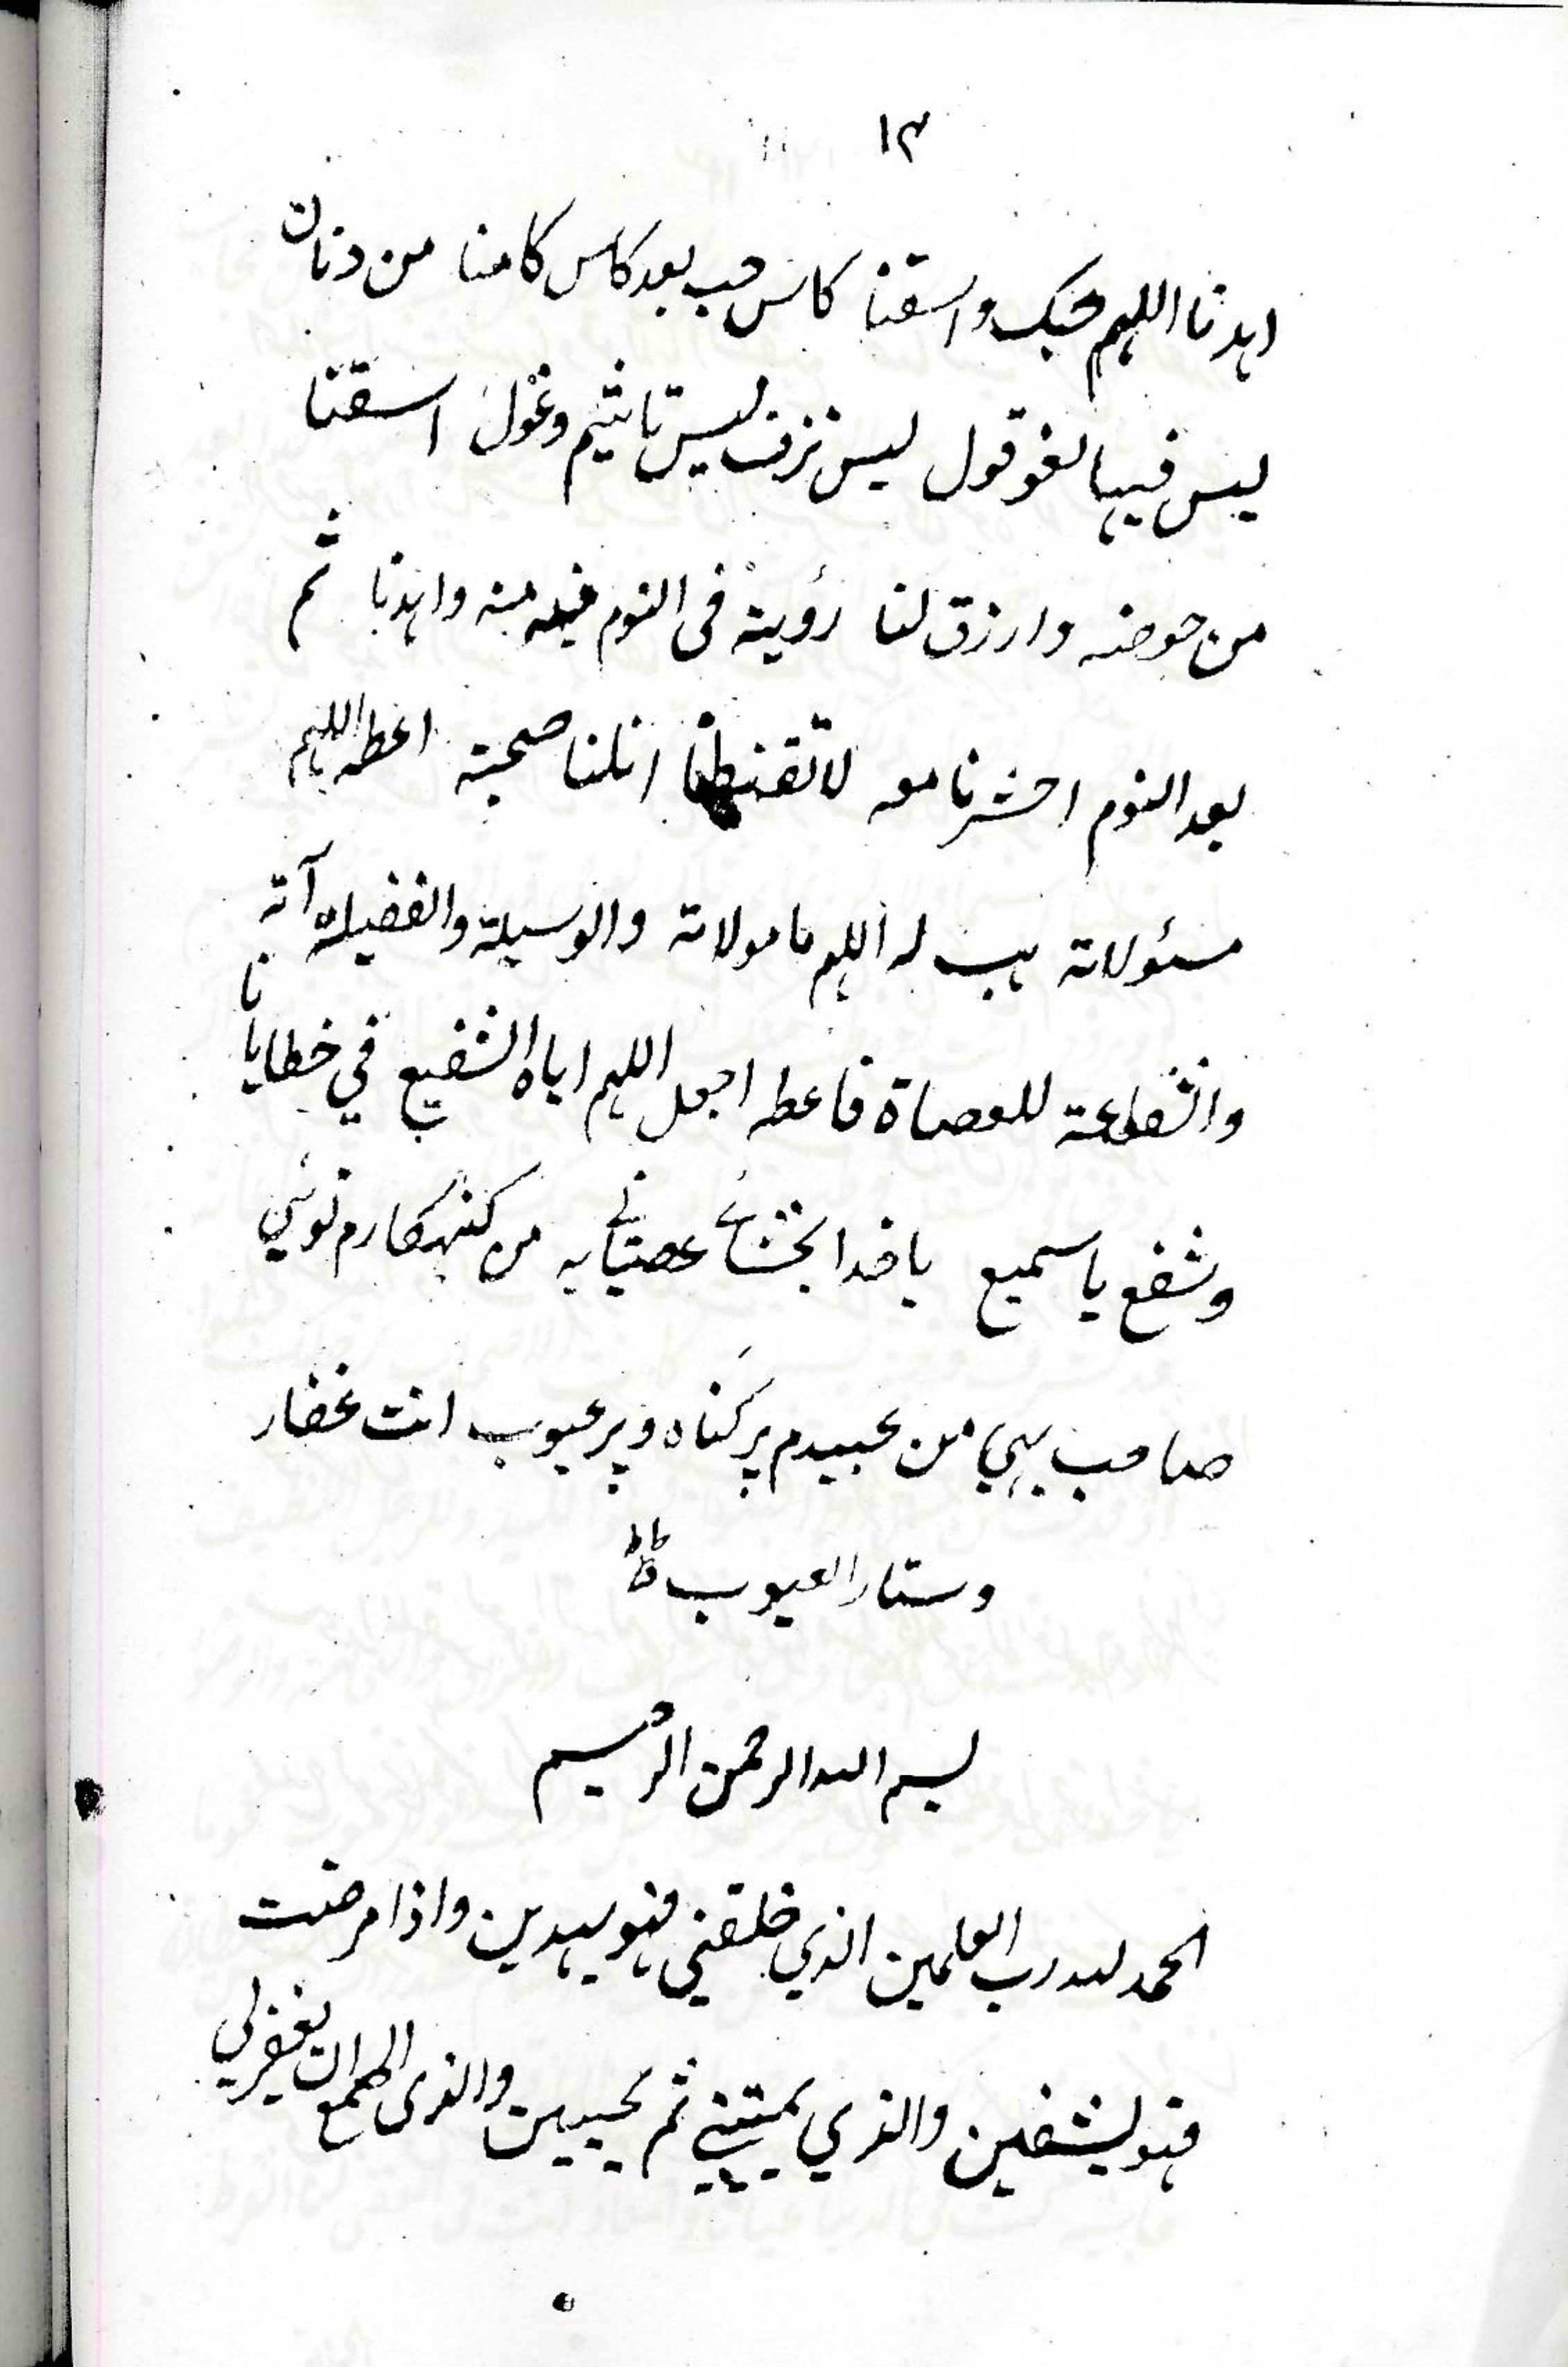 ۱۳
اهدنا اللهم حبک واسقنا کاس حب بعد کاس کامنا من دنان
لیس فیها لغو قول لیس نزف لیس تاثیم وغول اسقنا
من حوضه وارزق لنا رؤیة فی النوم فیه منه واهدنا ثم
بعد النوم احشرنا معه لا تقنطنا انلنا صحبته اعطه اللهم
مسئولاته هب له اللهم مامولاته والوسیلة والفضیلة آته
والشفاعة للعصاة فاعطه اجعل اللهم ایاه الشفیع في خطایانا
وشفع یا سمیع یا خدا بخشائے عصیانے به من کنهکارم توئي
صاحب بهي من عبیدم پر کناه و پر عیوب انت غفار
وستار العیوب
بسم الله الرحمن الرحیم
الحمد لله رب العلمین الذي خلقني فهو یهدین واذا مرضت
فهو یشفین والذي یمیتني ثم یحیین والذی اطمع ان یغفر لي